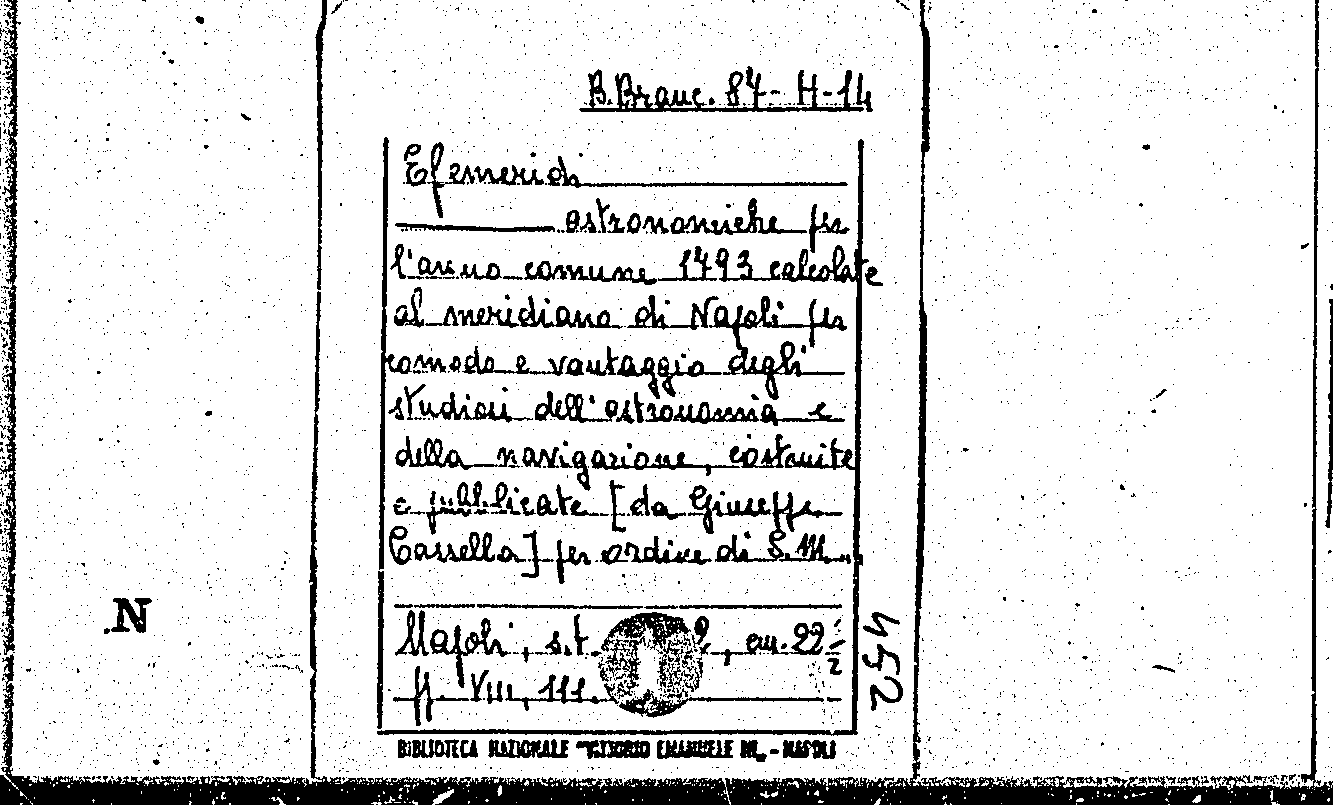 B.Branc. 87-H-14
Efemeridi
astronomiche per
l'anno comune 1793 calcolate
al meridiano di Napoli per
comodo e vantaggio degli
studiosi dell'astronomia e
della navigazione, costruite
e pubblicate [da Giuseppe
Cassella] per ordine di S.M...
Napoli, s.t. cm. 22
pp. VIII, 111.
452
N
BIBLIOTECA NAZIONALE "VITTORIO EMANUELE III„ - NAPOLI